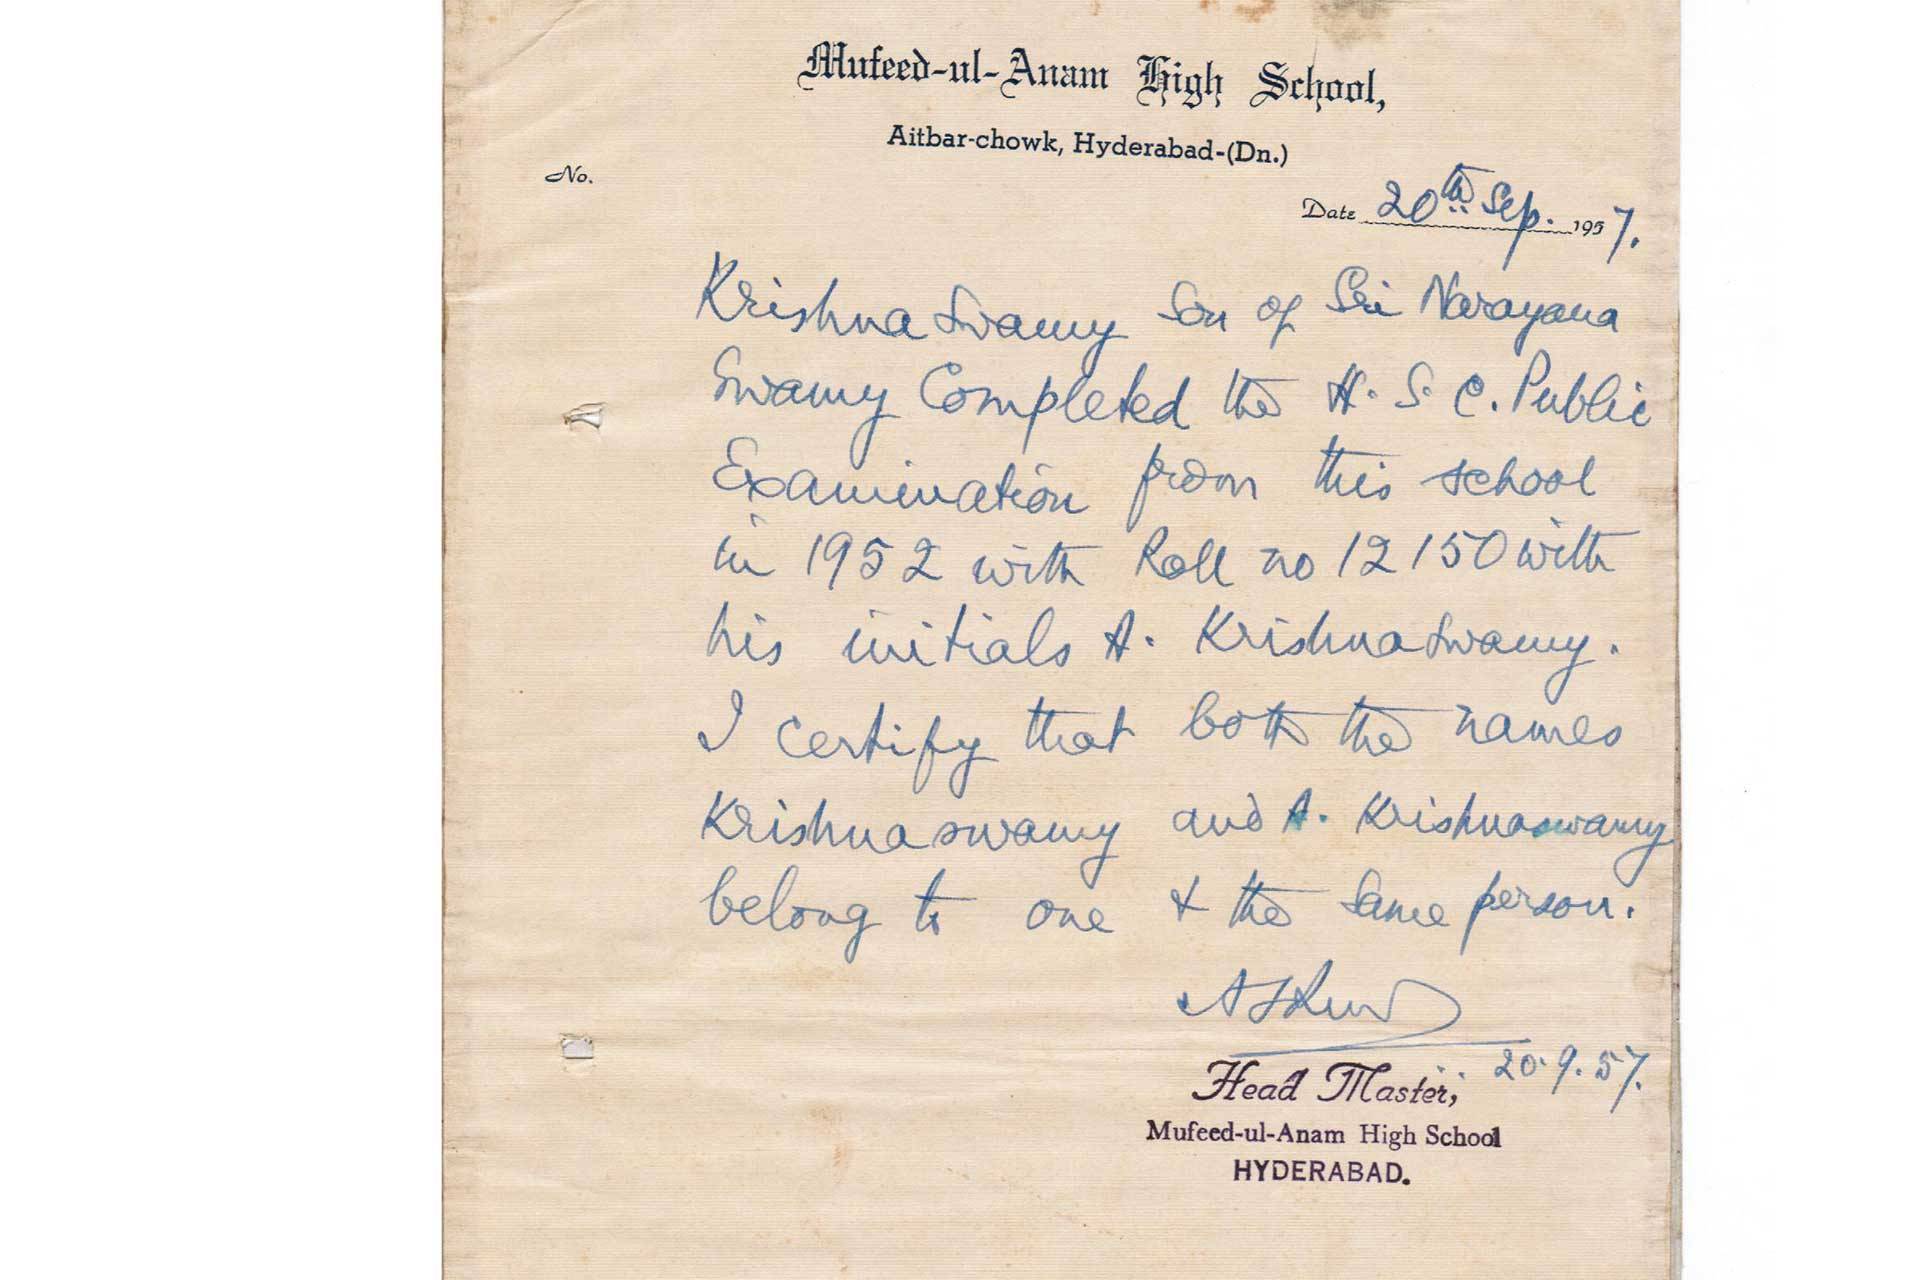 Mufeed-ul-Anam High School,
Aitbar-chowk, Hyderabad-(Dn.)
No.
Date 20th Sep. 1957.
Krishna Swamy Son of Sri Narayana
Swamy Completed the H. S. C. Public
Examination from this school
in 1952 with Roll no 12150 with
his initials A. KrishnaSwamy.
I certify that both the names
Krishnaswamy and A. Krishnaswamy
belong to one & the same person.
20.9.57.
Head Master,
Mufeed-ul-Anam High School
HYDERABAD.